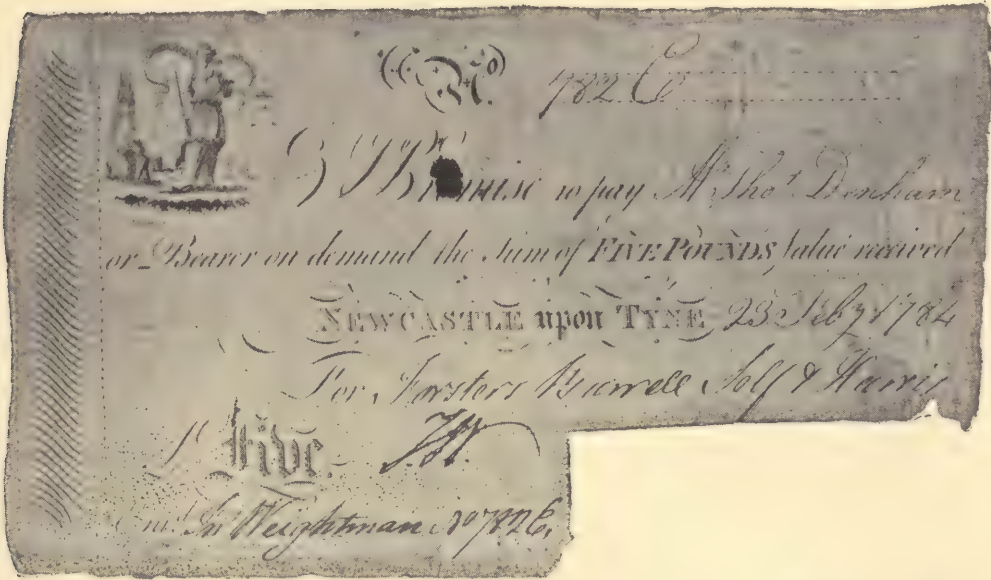 No. 782 E
I Promise to pay Mr. Thos. Denham
or Bearer on demand the Sum of FIVE POUNDS Value received
NEWCASTLE upon TYNE 23 Feby 1784
For Forsters Burrell Self & Harris
£ Five.
Entd. Jn Weightman No 782 E.